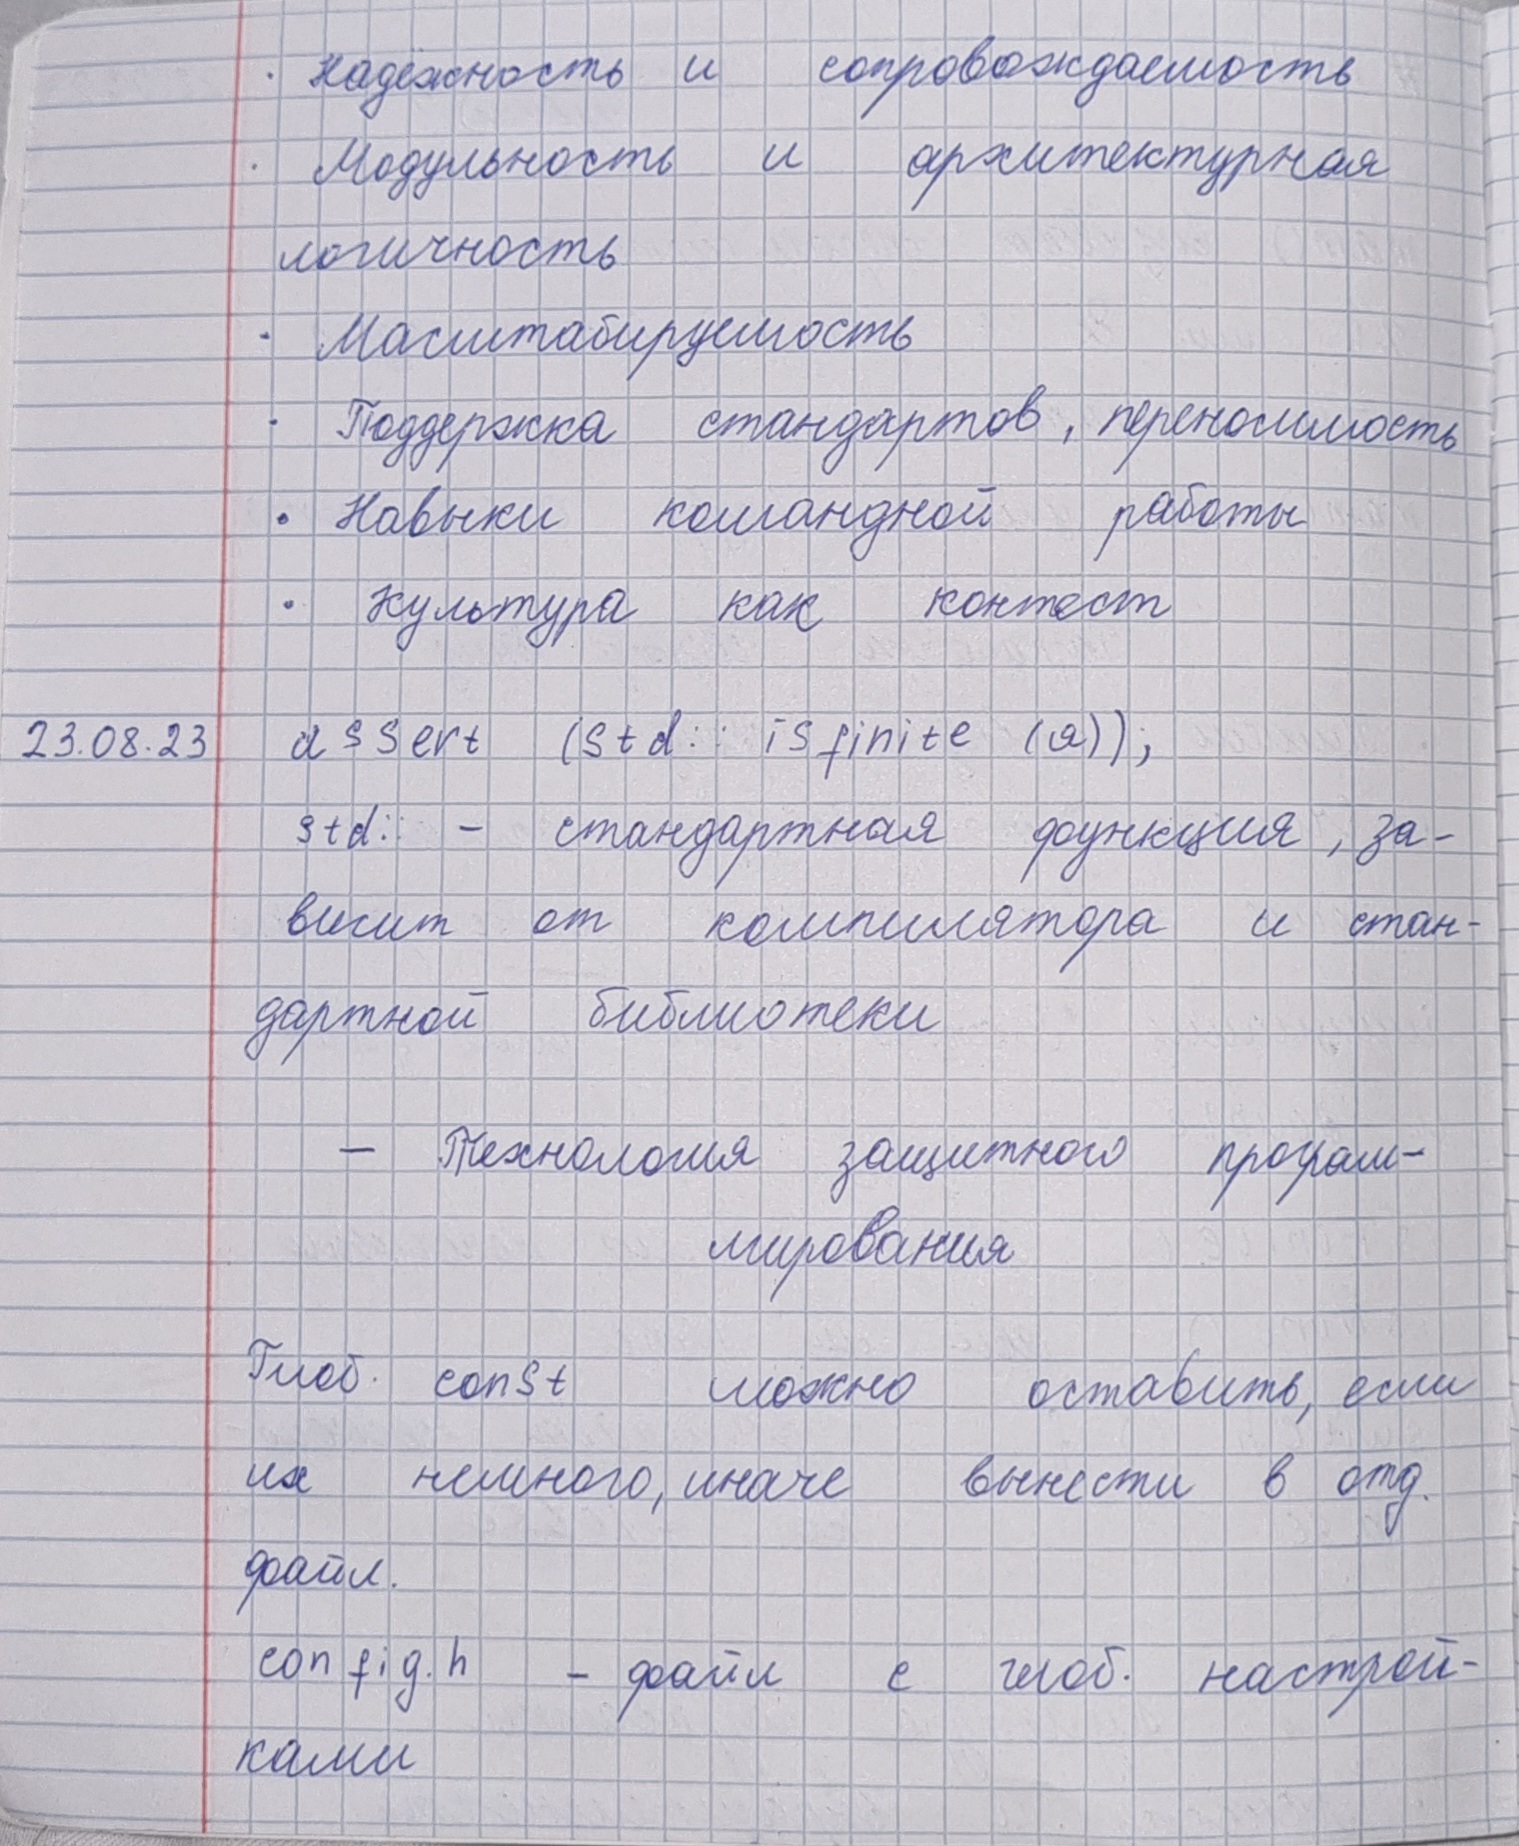 · Надёжность и сопровождаемость
· Модульность и архитектурная
логичность
· Масштабируемость
· Поддержка стандартов, переносимость
· Навыки командной работы
· Культура как контест
23.08.23 assert (std:: isfinite (a));
std:: - стандартная функция, за-
висит от компилятора и стан-
дартной библиотеки
- Технология защитного програм-
мирования
Глоб. const можно оставить, если
их немного, иначе вынести в отд.
файл.
config.h - файл с глоб. настрой-
ками